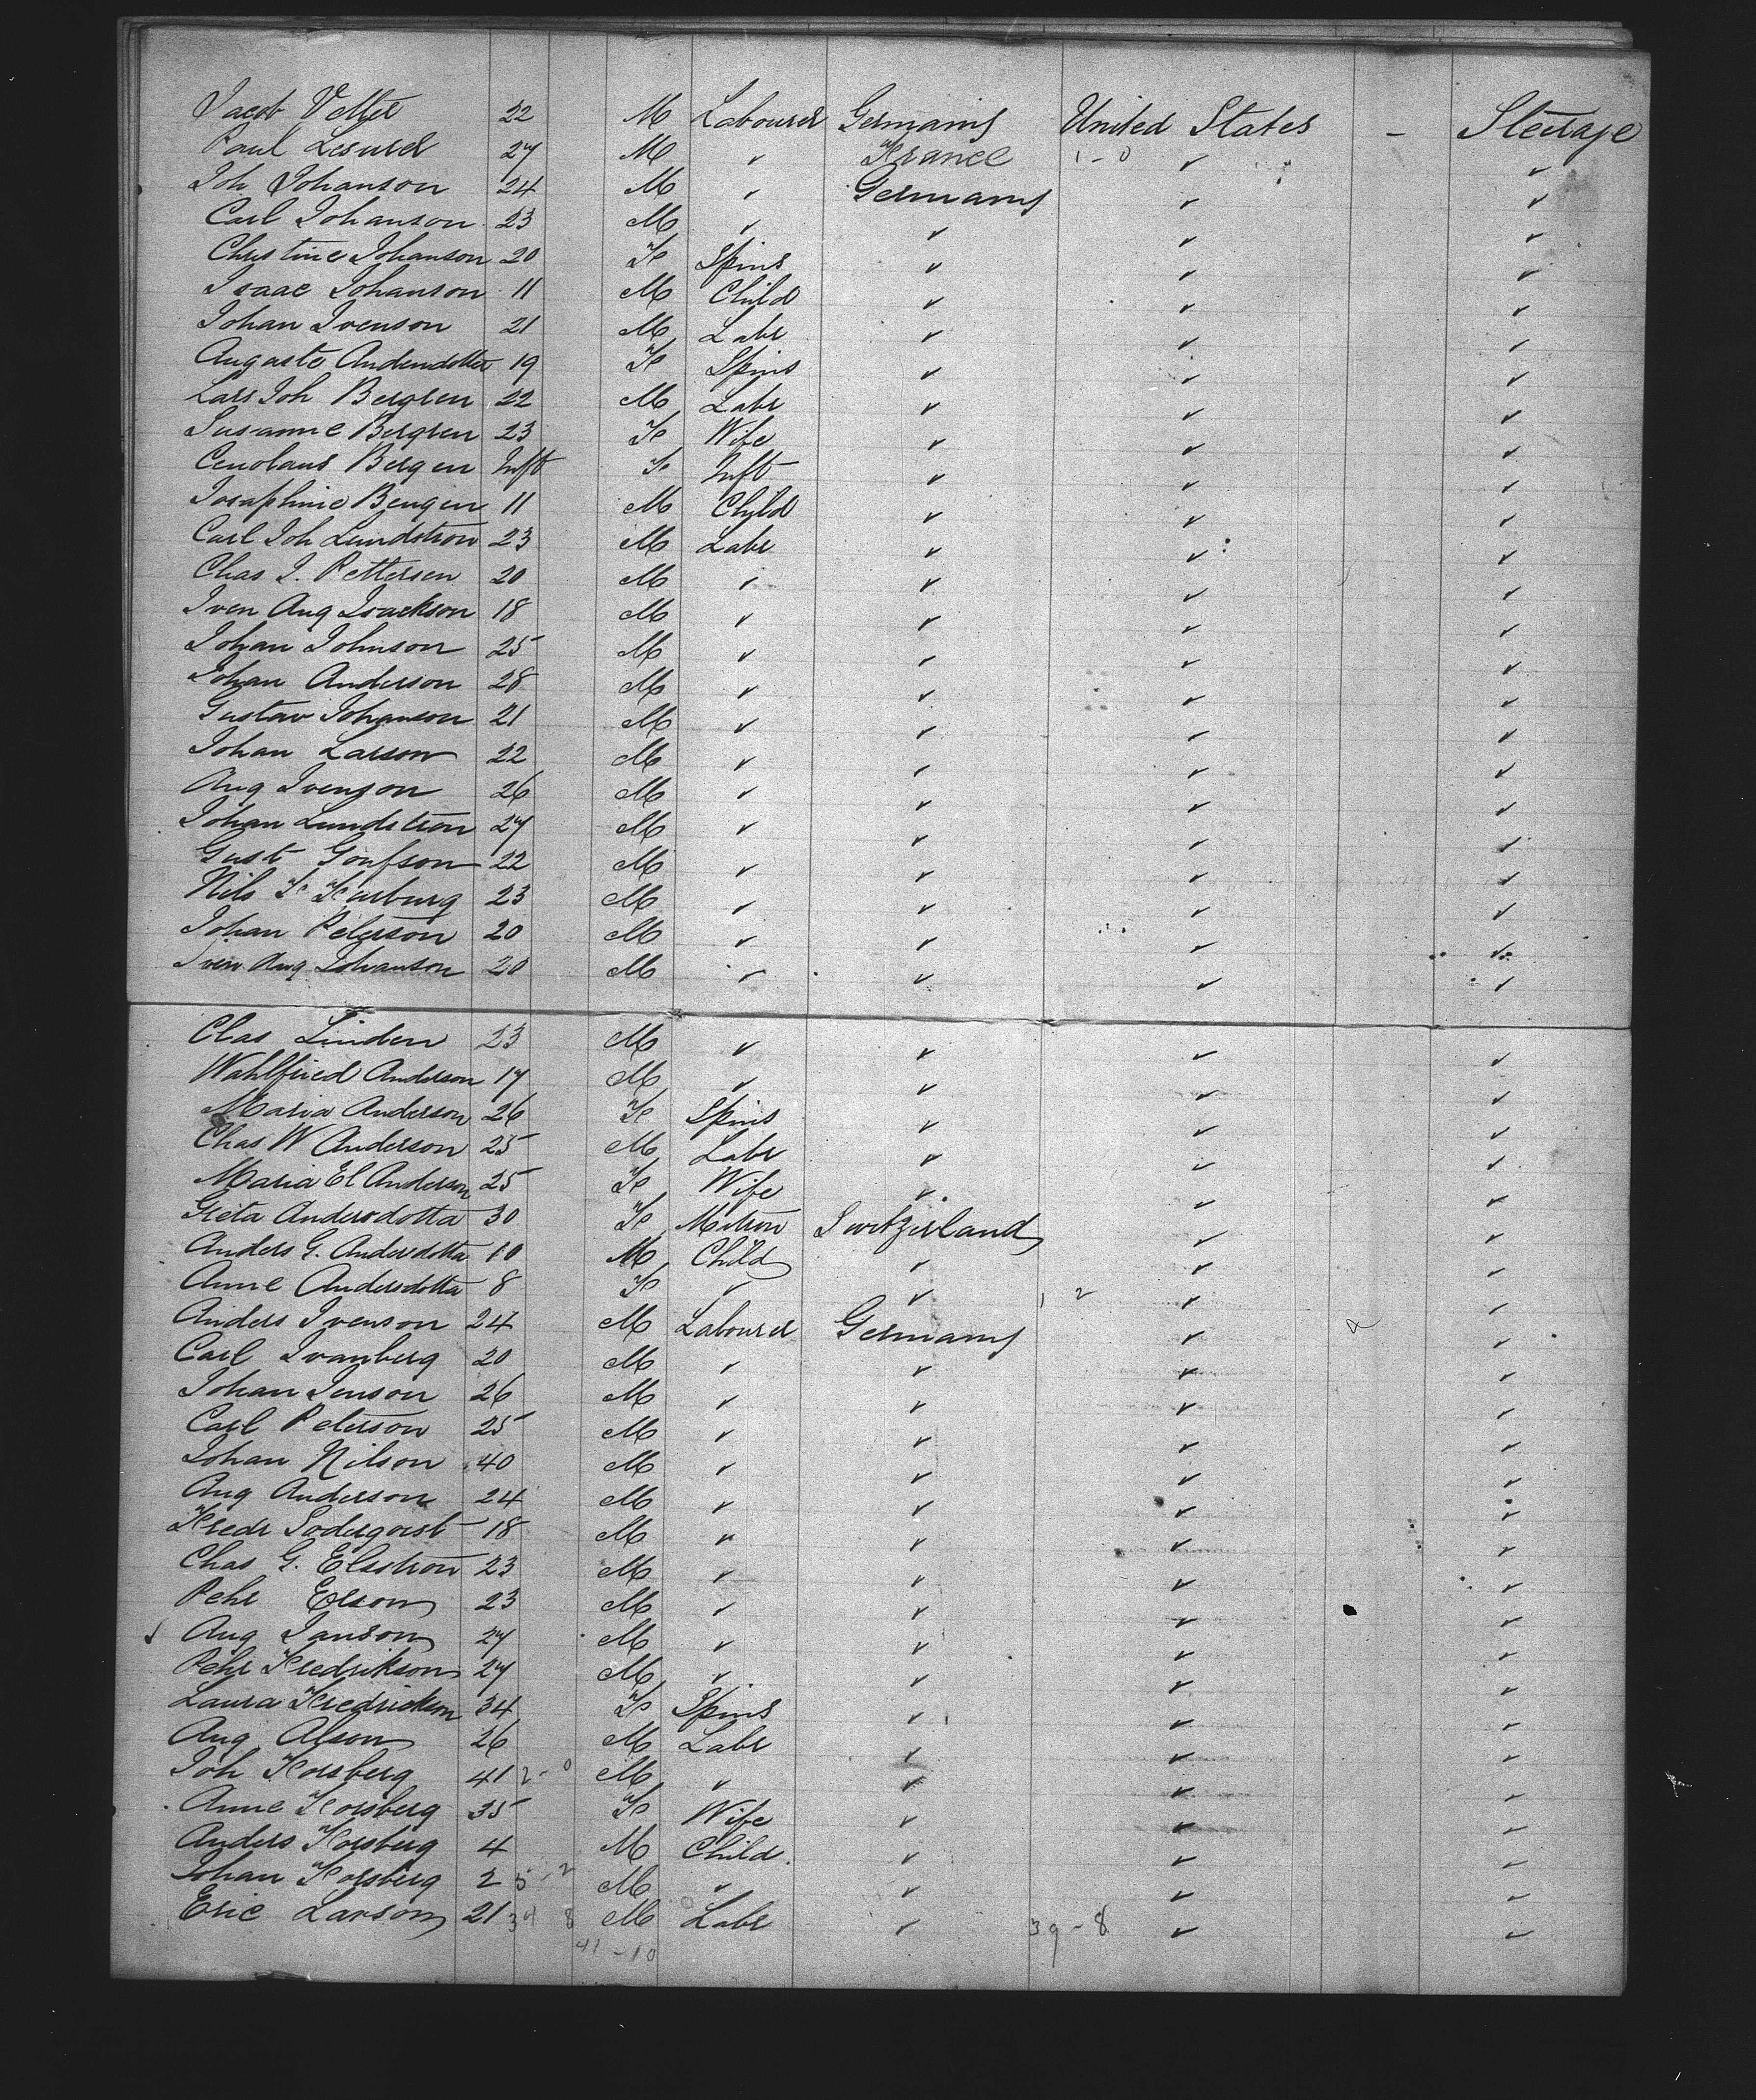 Jacob Vetter 22 M Labourer Germany United States - Steerage
Paul Lesurd 27 M ✓ France 1-0 ✓ ✓
Joh Johanson 24 M ✓ Germany ✓ ✓
Carl Johanson 23 M ✓ ✓ ✓ ✓
Christine Johanson 20 F Spins ✓ ✓ ✓
Isaac Johanson 11 M Child ✓ ✓ ✓
Johan Ivenson 21 M Labr ✓ ✓ ✓
Auguste Andersdotter 19 F Spins ✓ ✓ ✓
Lars Joh Bergren 22 M Labr ✓ ✓ ✓
Susanne Bergren 23 F Wife ✓ ✓ ✓
Bergen Inft F Inft ✓ ✓ ✓
Josephine Bengen 11 M Child ✓ ✓ ✓
Carl Joh Lundstron 23 M Labr ✓ ✓ ✓
Chas J. Pettersen 20 M ✓ ✓ ✓ ✓
Iven Aug Isackson 18 M ✓ ✓ ✓ ✓
Johan Johnson 25 M ✓ ✓ ✓ ✓
Johan Anderson 28 M ✓ ✓ ✓ ✓
Gustav Johanson 21 M ✓ ✓ ✓ ✓
Johan Larson 22 M ✓ ✓ ✓ ✓
Aug Ivenson 26 M ✓ ✓ ✓ ✓
Johan Lundstron 27 M ✓ ✓ ✓ ✓
Gust Gonfson 22 M ✓ ✓ ✓ ✓
Nils F Farburg 23 M ✓ ✓ ✓ ✓
Johan Peterson 20 M ✓ ✓ ✓ ✓
Iven Aug Johanson 20 M ✓ ✓ ✓ ✓
Clas Linden 23 M ✓ ✓ ✓ ✓
Wahlfried Anderson 17 M ✓ ✓ ✓ ✓
Maria Anderson 26 F Spins ✓ ✓ ✓
Chas W Anderson 25 M Labr ✓ ✓ ✓
Maria El Anderson 25 F Wife ✓ ✓ ✓
Greta Andersdotta 30 F Matron Switzerland ✓ ✓
Anders G. Andersdotta 10 M Child ✓ ✓ ✓
Anne Andersdotta 8 F ✓ ✓ 1 2 ✓ ✓
Anders Ivenson 24 M Labourer Germany ✓ ✓
Carl Ivanberg 20 M ✓ ✓ ✓ ✓
Johan Jenson 26 M ✓ ✓ ✓ ✓
Carl Peterson 25 M ✓ ✓ ✓ ✓
Johan Nilson 40 M ✓ ✓ ✓ ✓
Aug Anderson 24 M ✓ ✓ ✓ ✓
Fredr Soderqvist 18 M ✓ ✓ ✓ ✓
Chas G. Elsstron 23 M ✓ ✓ ✓ ✓
Pehr Erson 23 M ✓ ✓ ✓ ✓
✓ Aug Janson 27 M ✓ ✓ ✓ ✓
Pehr Fredrikson 27 M ✓ ✓ ✓ ✓
Laura Fredrickson 34 F Spins ✓ ✓ ✓
Aug Alson 26 M Labr ✓ ✓ ✓
Joh Forsberg 41 2-0 M ✓ ✓ ✓ ✓
Anne Forsberg 35 F Wife ✓ ✓ ✓
Anders Forsberg 4 M Child ✓ ✓ ✓
Johan Forsberg 2 5-2 M ✓ ✓ ✓ ✓
Eric Larson 21 34 8 M Labr ✓ 39-8 ✓ ✓
41-10